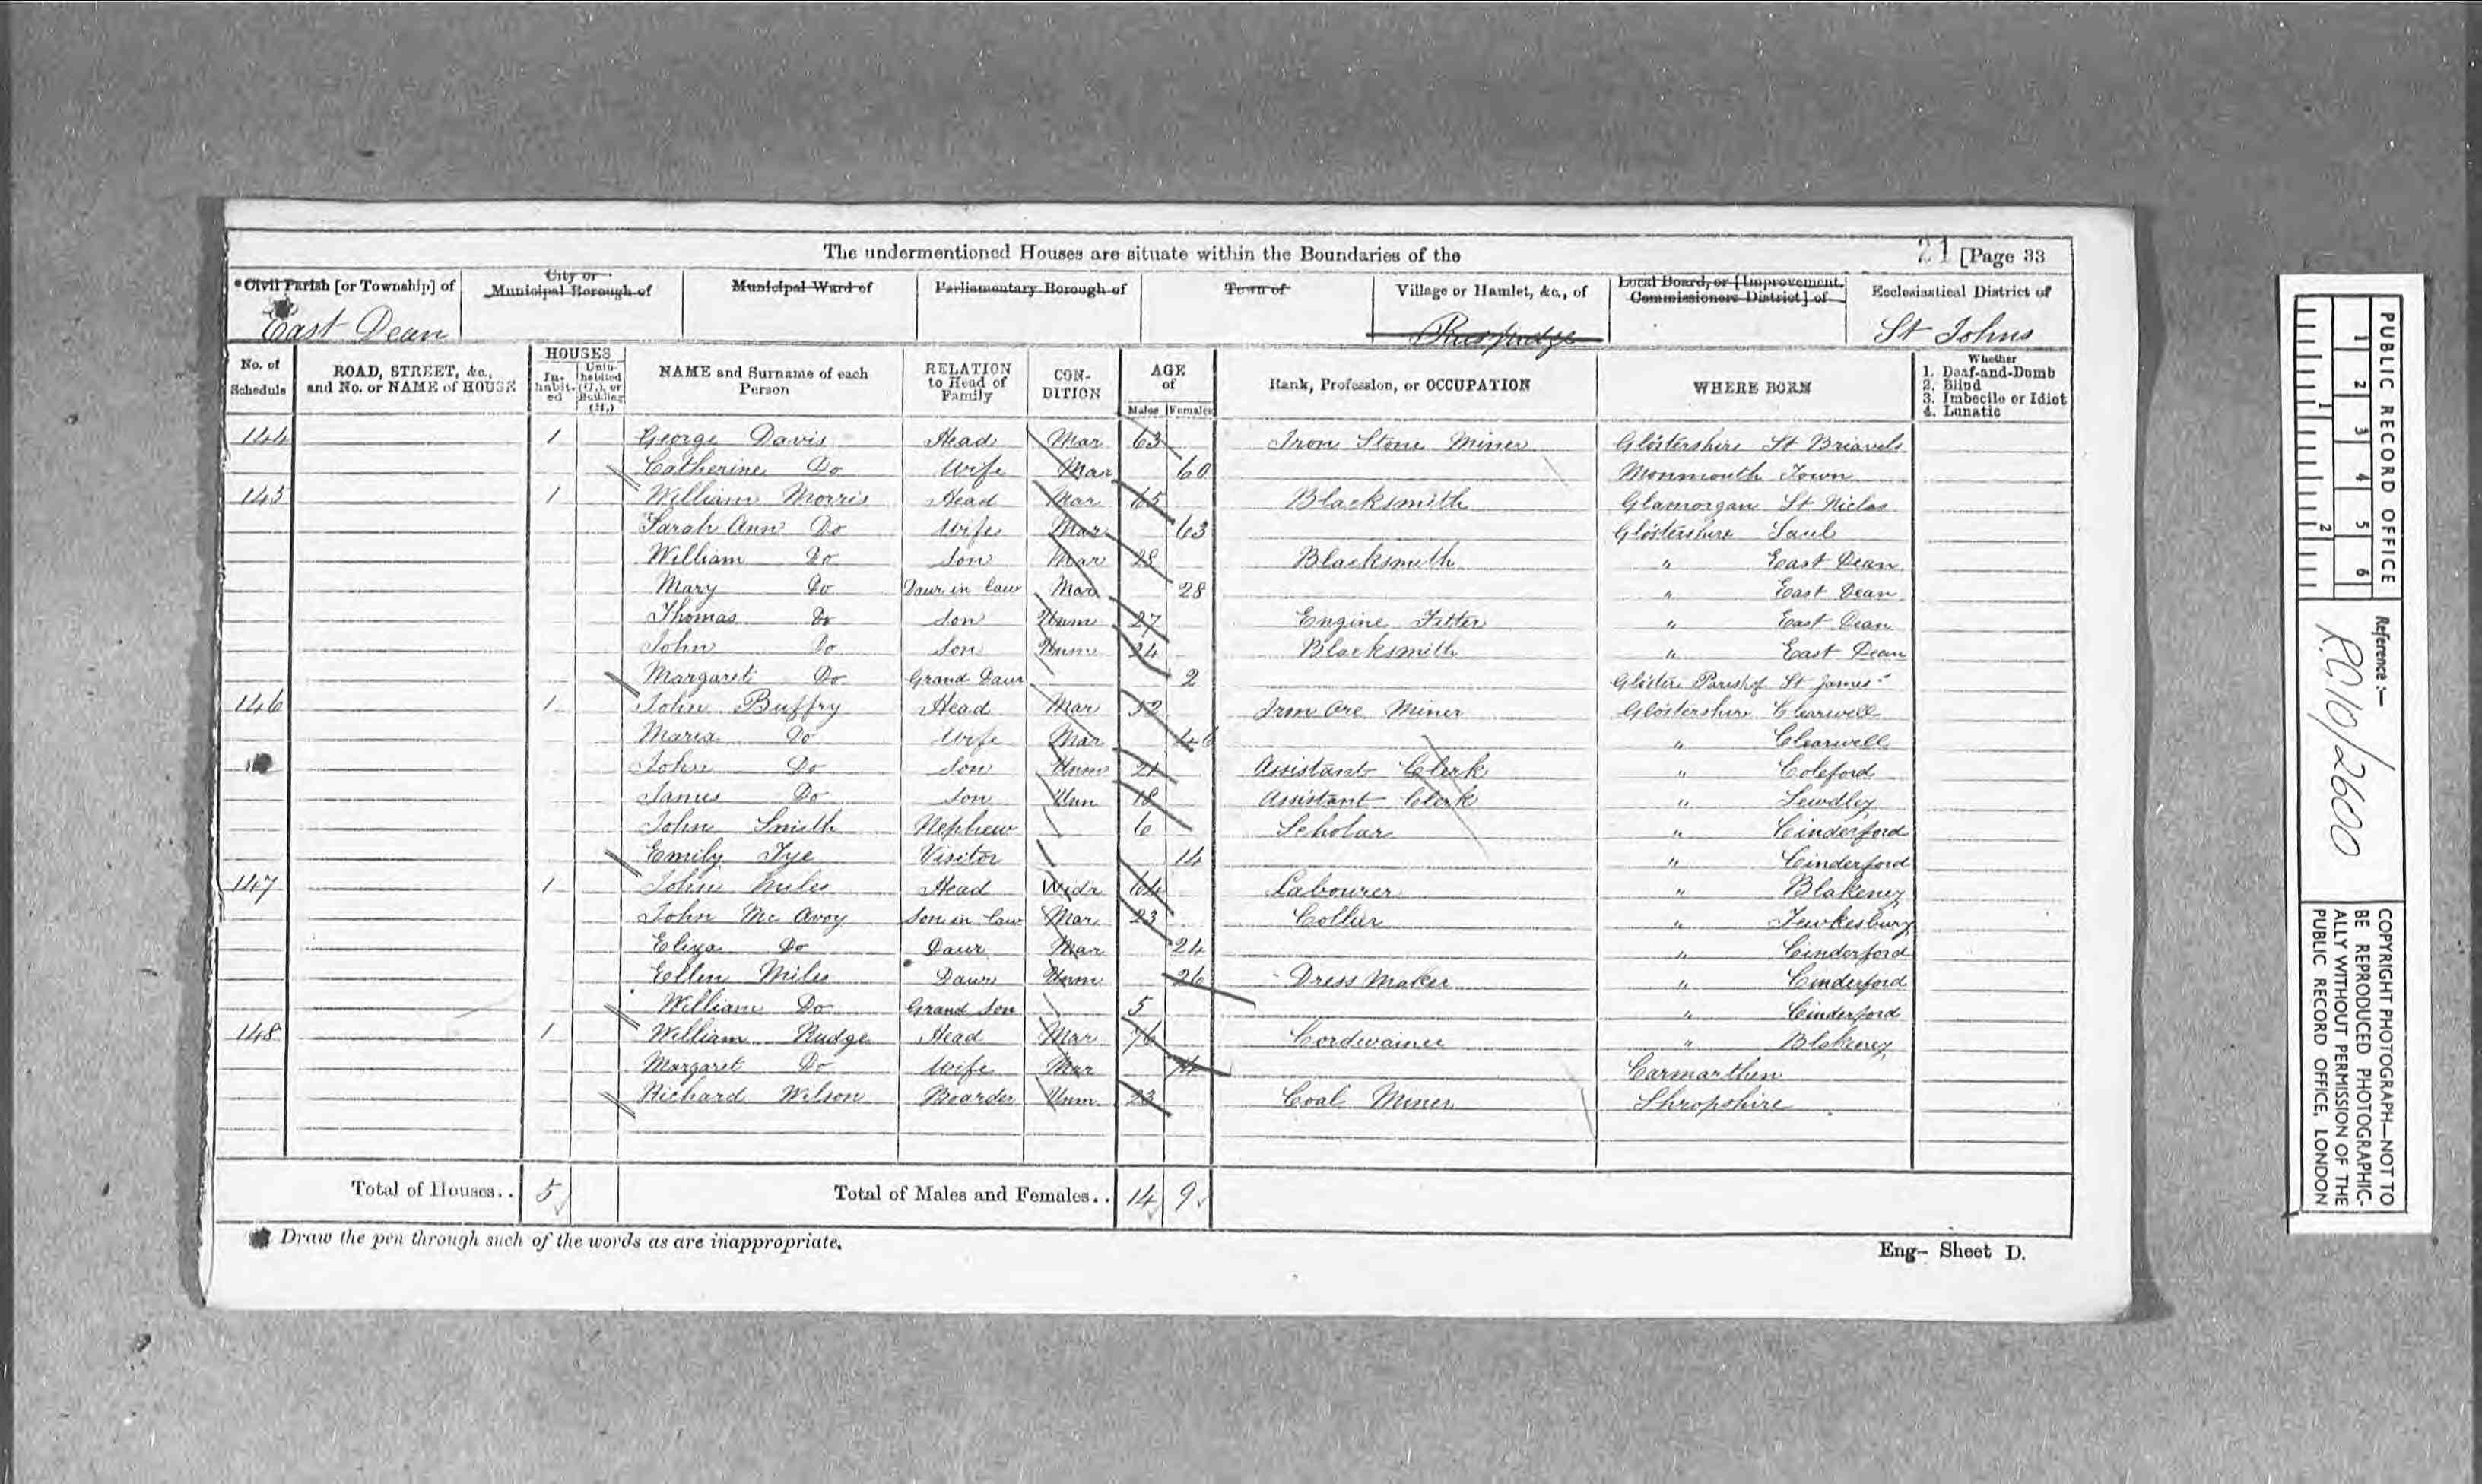 The undermentioned Houses are situate within the Boundaries of the
21 [Page 33
*Civil Parish [or Township] of City or Municipal Borough of Municipal Ward of Parliamentary Borough of Town of Village or Hamlet, &c., of Local Board, or [Improvement Commissioners District] of Ecclesiastical District of
East Dean St Johns
No. of Schedule ROAD, STREET, &c., and No. or NAME of HOUSE HOUSES Inhabited Uninhabited (U.), or Building (B.) NAME and Surname of each Person RELATION to Head of Family CONDITION AGE of Males Females Rank, Profession, or OCCUPATION WHERE BORN Whether 1. Deaf-and-Dumb 2. Blind 3. Imbecile or Idiot 4. Lunatic
144 1 George Davis Head Mar 63 Iron Stone Miner Glostershire St Briavels
Catherine Do Wife Mar 60 Monmouth Town
145 1 William Morris Head Mar 65 Blacksmith Glamorgan St Niclas
Sarah Ann Do Wife Mar 63 Glostershire Saul
William Do Son Mar 28 Blacksmith " East Dean
Mary Do Daur in law Mar 28 " East Dean
Thomas Do Son Unm 27 Engine Fitter " East Dean
John Do Son Unm 24 Blacksmith " East Dean
Margaret Do Grand Daur 2 Gloster Parish of St James
146 1 John Buffry Head Mar 52 Iron Ore Miner Glostershire Clearwell
Maria Do Wife Mar 46 " Clearwell
John Do Son Unm 21 Assistant Clerk " Coleford
James Do Son Unm 18 Assistant Clerk "
John Smith Nephew 6 Scholar " Cinderford
Emily Tye Visitor 14 " Cinderford
147 1 John Miles Head Widr 64 Labourer " Blakeney
John Mc Avoy Son in law Mar 23 Collier " Tewkesbury
Eliza Do Daur Mar 24 " Cinderford
Eellen Miles Daur Unm 26 Dress Maker " Cinderford
William Do Grand Son 5 " Cinderford
148 1 William Rudge Head Mar 76 Cordwainer " Blakeney
Margaret Do Wife Mar Carmarthen
Richard Wilson Boarder Unm 23 Coal Miner Shropshire
Total of Houses.. 5 Total of Males and Females.. 14 9
Draw the pen through such of the words as are inappropriate.
Eng- Sheet D.
PUBLIC RECORD OFFICE
1 2 3 4 5 6
1 2
Reference :-
RG10/2600
COPYRIGHT PHOTOGRAPH—NOT TO
BE REPRODUCED PHOTOGRAPHIC-
ALLY WITHOUT PERMISSION OF THE
PUBLIC RECORD OFFICE, LONDON